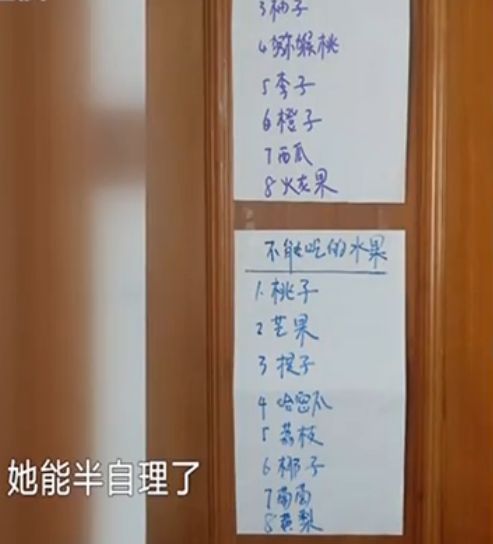 3 柚子
4 猕猴桃
5 李子
6 橙子
7 西瓜
8 火龙果
不能吃的水果
1. 桃子
2 芒果
3 提子
4 哈密瓜
5 荔枝
6 椰子
7 南南
8 黄梨
她能半自理了